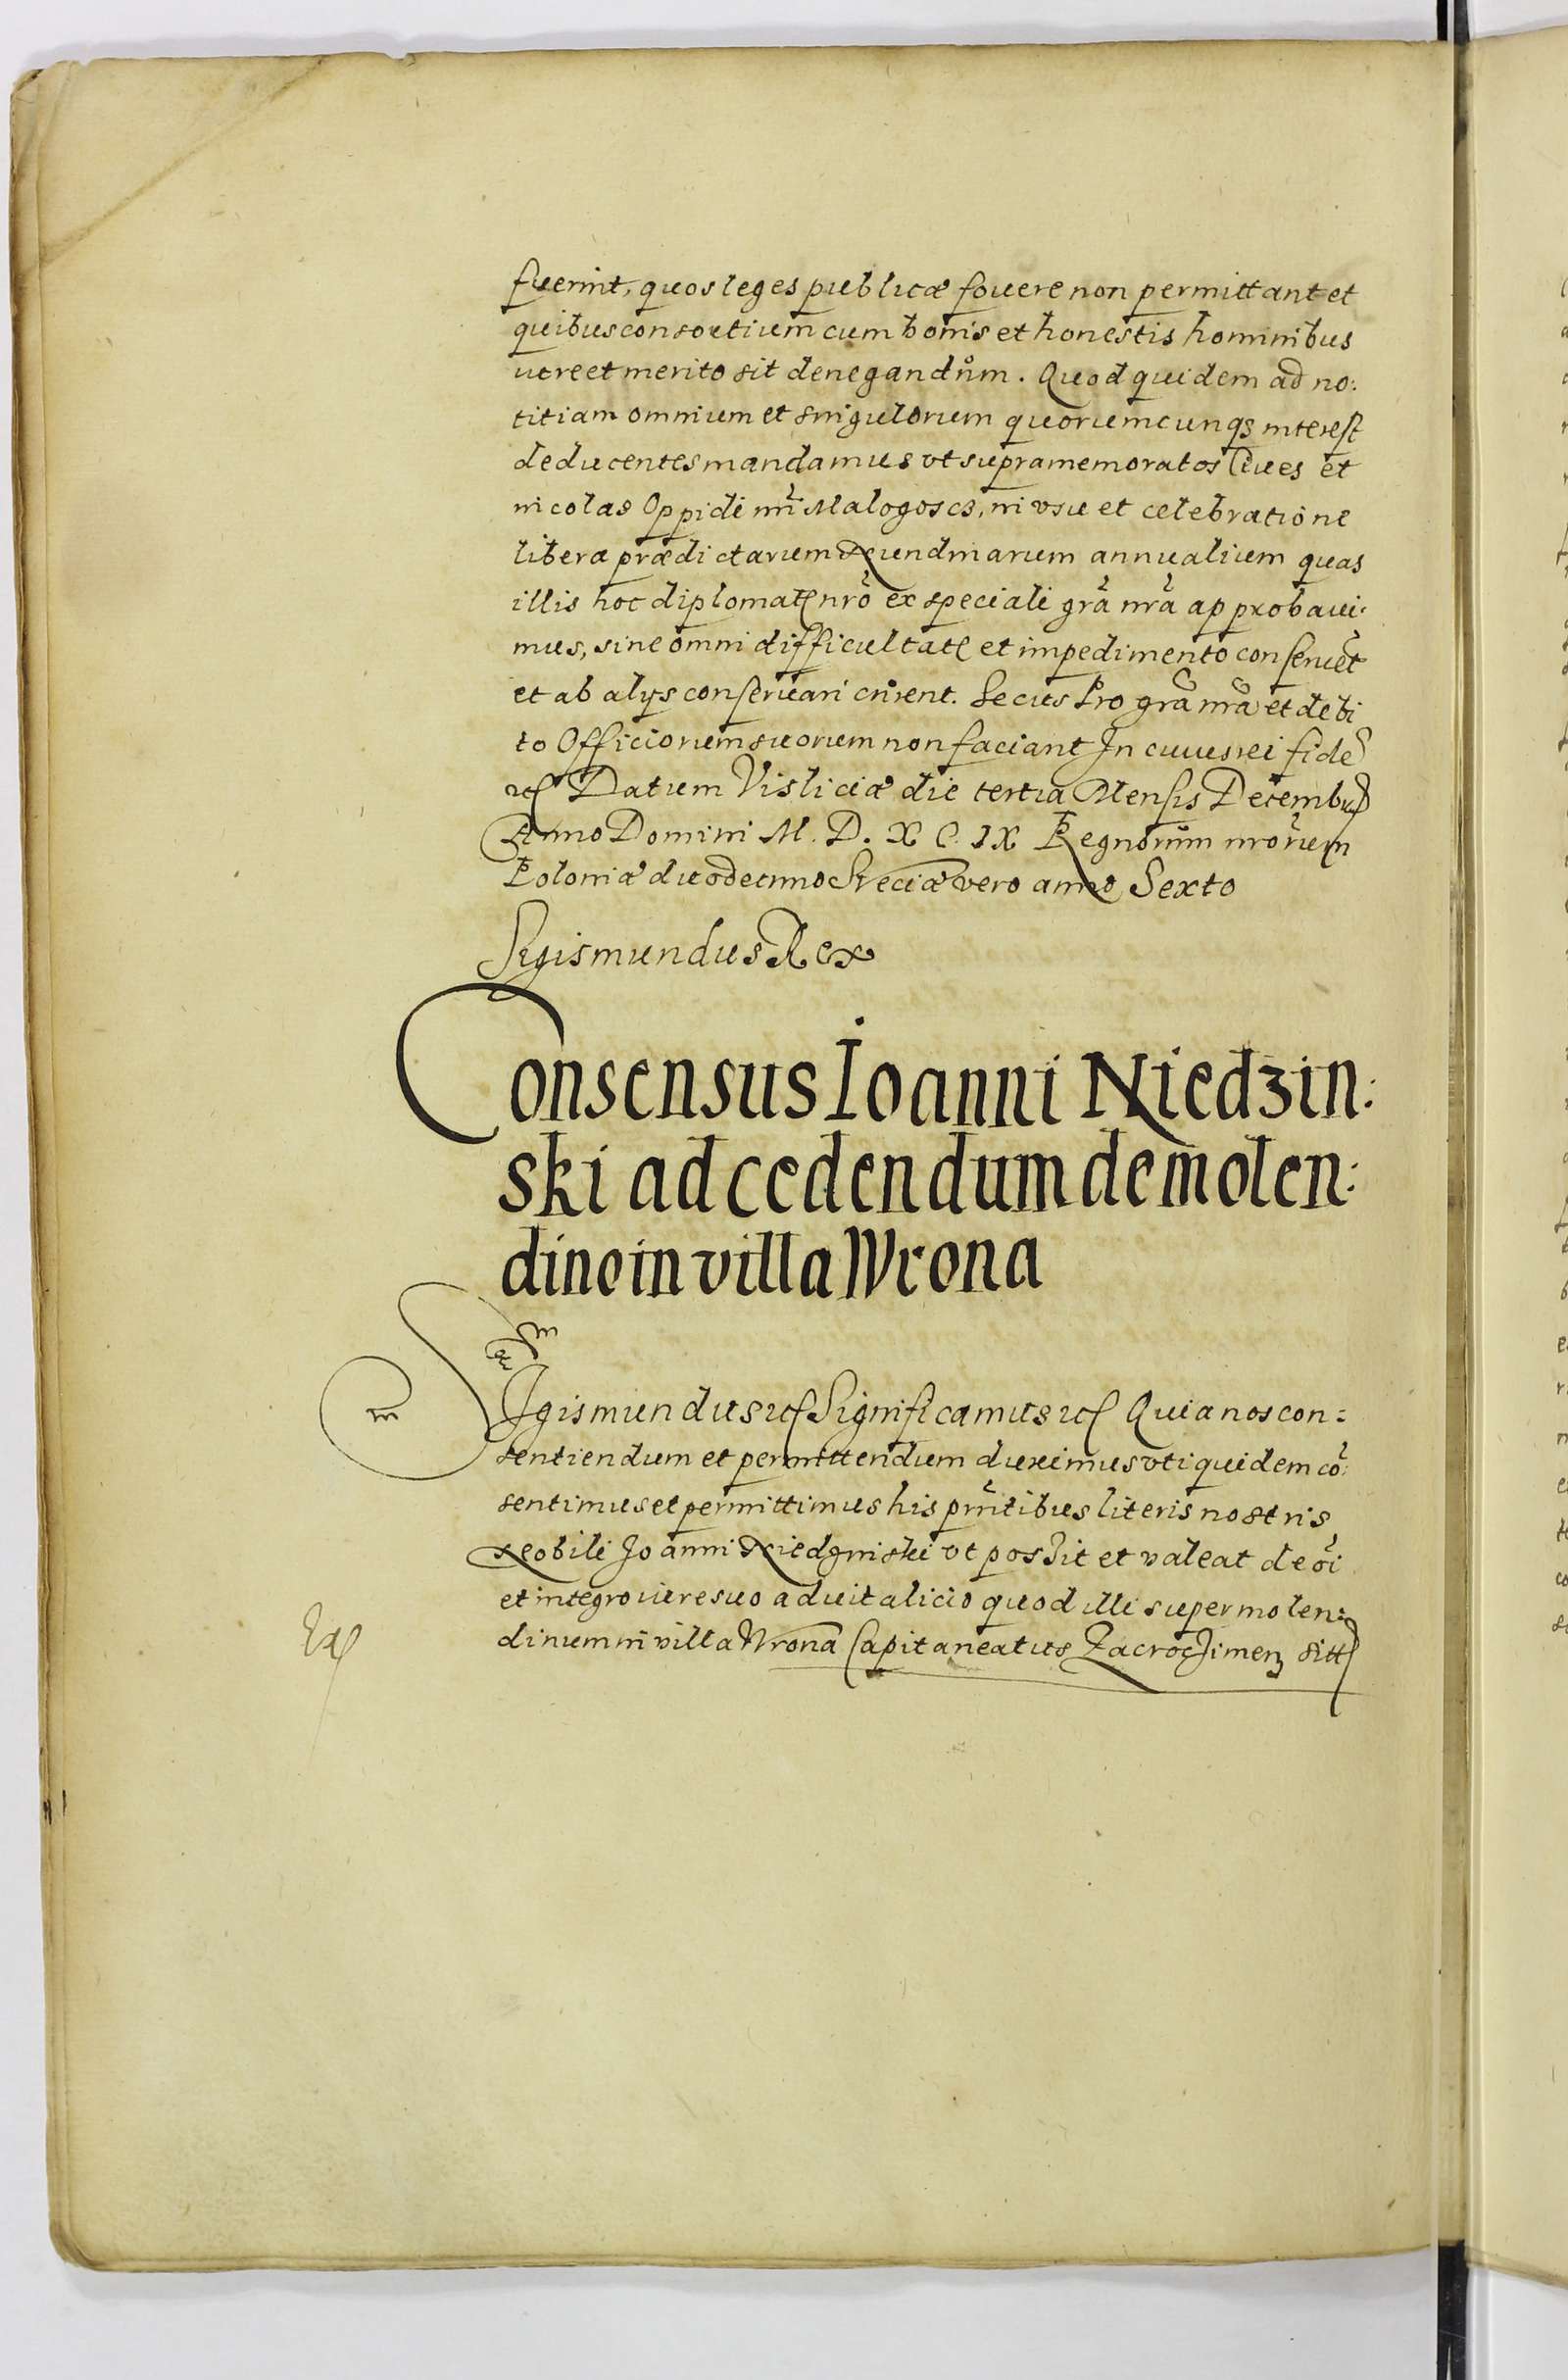 fuerint, quos leges publicæ fouere non permittant et
quibus consortium cum bonis et honestis hominibus
iure et merito sit denegandum. Quod quidem ad no:
titiam omnium et singulorum quorumcunqȝ interest
deducentes mandamus vt supramemoratos Ciues et
incolas Oppidi nri Malogoscz, in vsu et celebratione
libera prædictarum Nundinarum annualium quas
illis hoc diplomate nro ex speciali gra nra approbaui:
mus, sine omni difficultate et impedimento conseruet
et ab alys conseruari curent. Secus pro gra nra et debi
to Officiorum suorum non faciant In cuius rei fide
etc Datum Visliciæ die tertia Mensis Decembris
Anno Domini M. D. X C. IX Regnorum nrorum
Poloniæ duodecimo Sueciæ vero anno Sexto
Sigismundus Rex
Consensus Ioanni Niedzin:
ski ad cedendum de molen:
dino in villa Wrona
Sigismundus etc Significamus etc Quia nos con:
sentiendum et permittendum duximus vti quidem co:
sentimus et permittimus his prntibus literis nostris
Nobili Joanni Niedzinski vt possit et valeat de oi
et integro iure suo aduitalicio quod illi super molen:
dinum in villa Wrona Capitaneatus Zacrocimen sitt